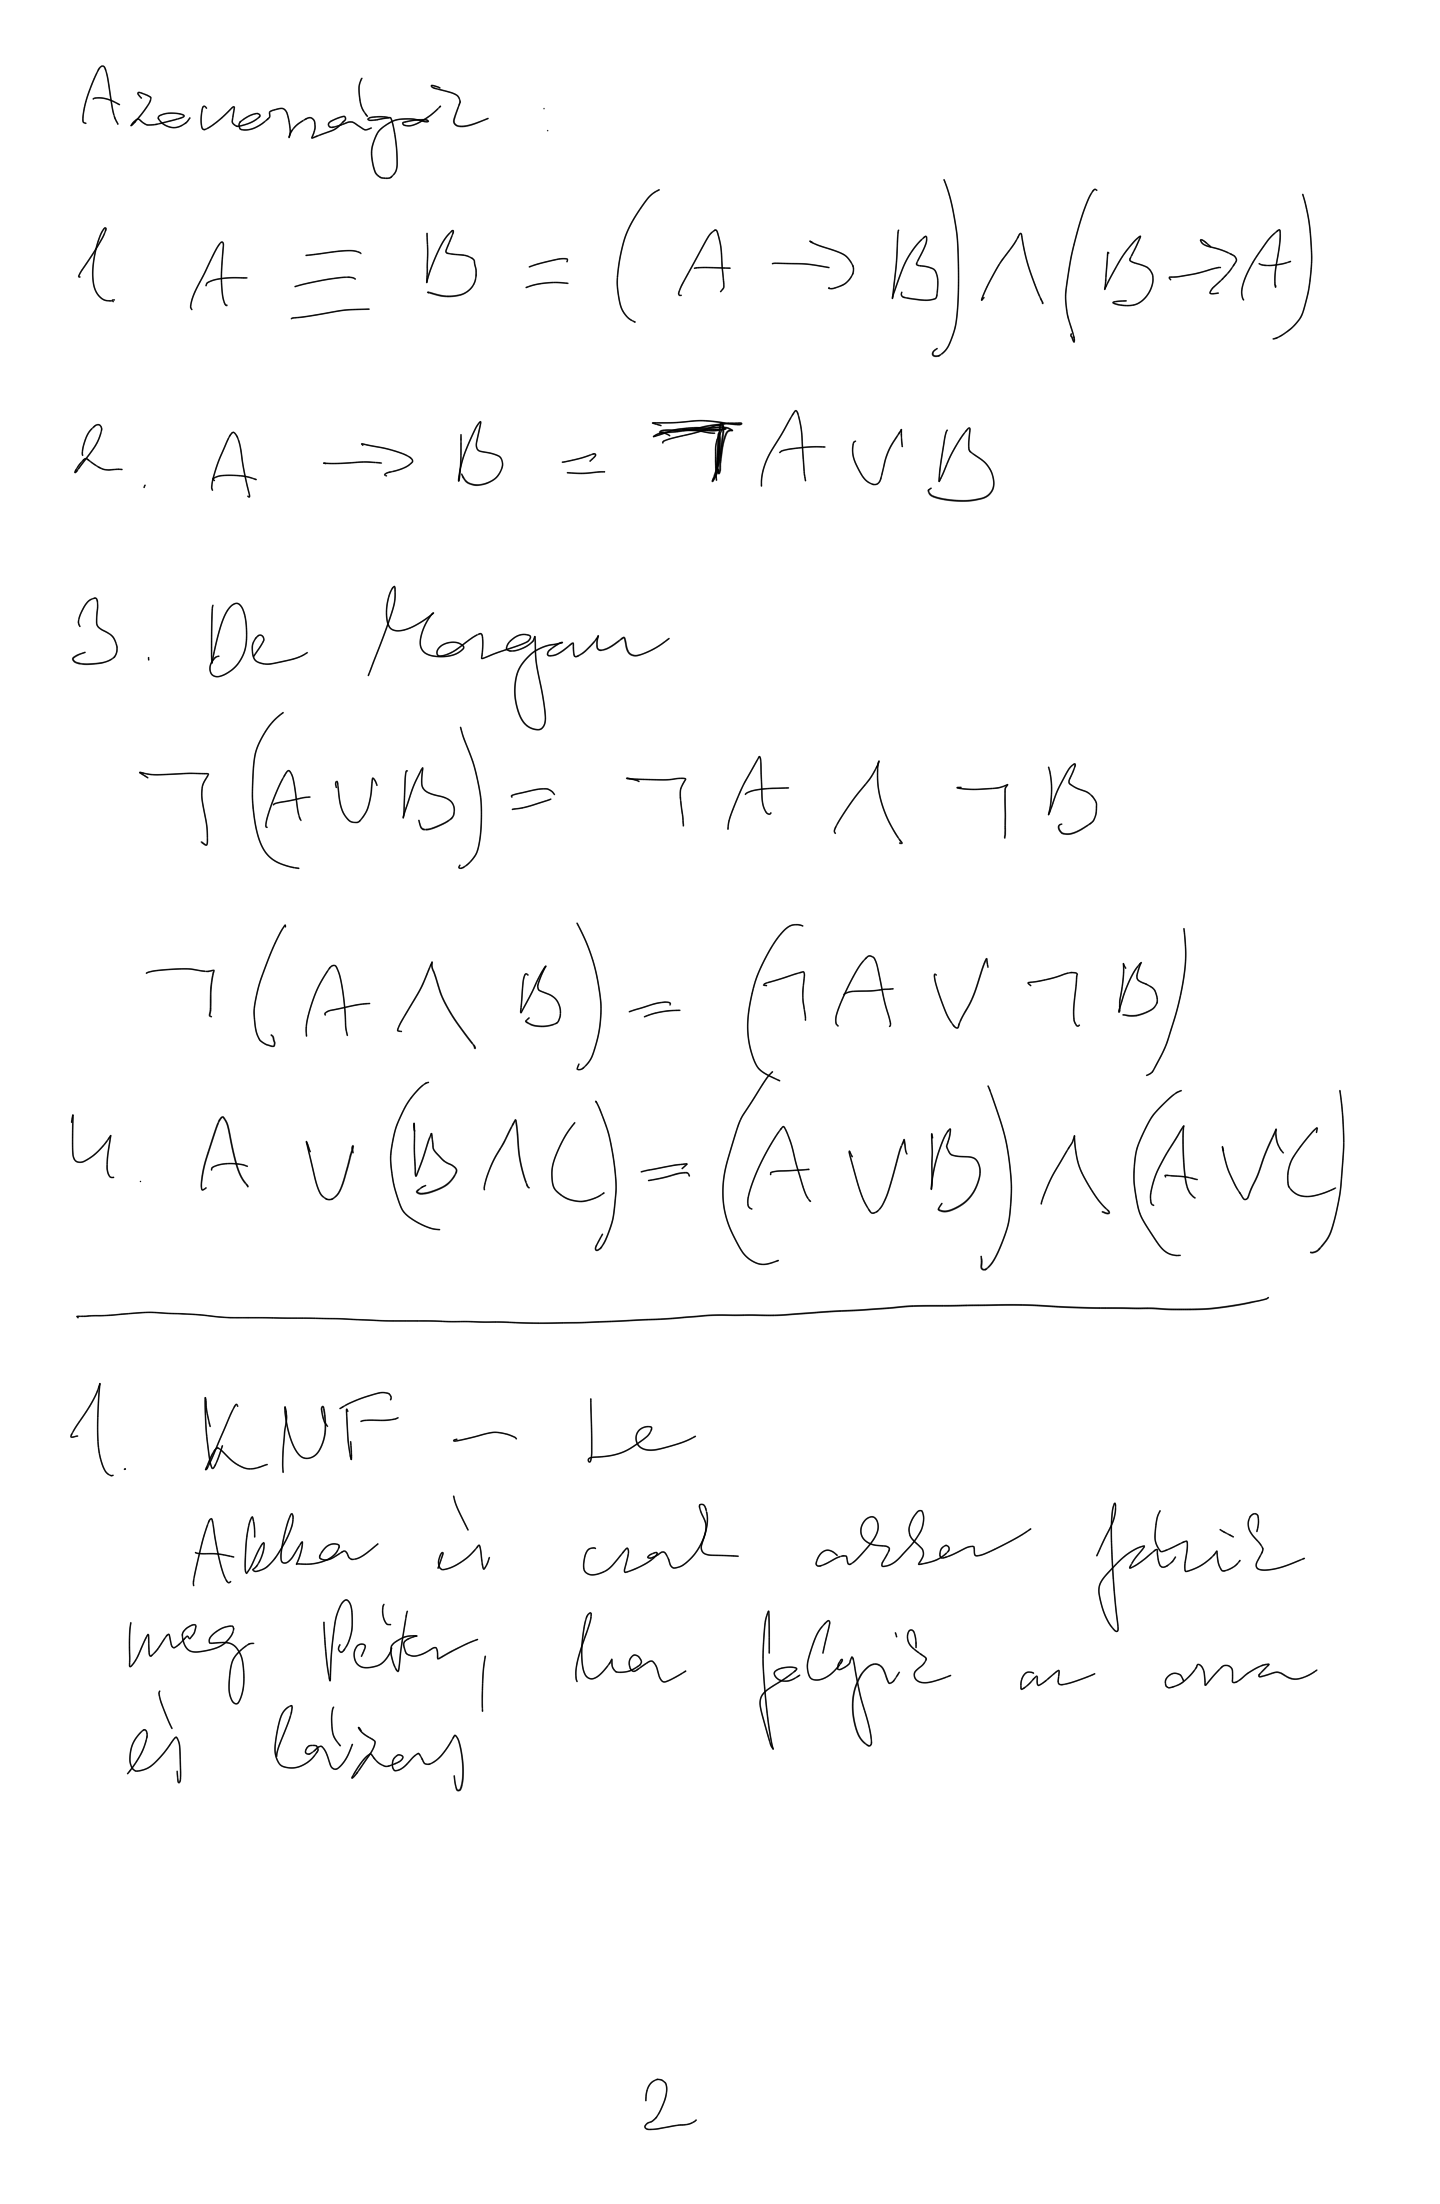 Azonosságok:
1 A ≡ B = (A → B) ∧ (B → A)
2. A → B = ¬A ∨ B
3. De Morgan
¬(A ∨ B) = ¬A ∧ ¬B
¬(A ∧ B) = (¬A ∨ ¬B)
4. A ∨ (B ∧ C) = (A ∨ B) ∧ (A ∨ C)
1. KNF - Le
Akkor és csak akkor fázik
meg Péter, ha folyik az orra
és lázas
2